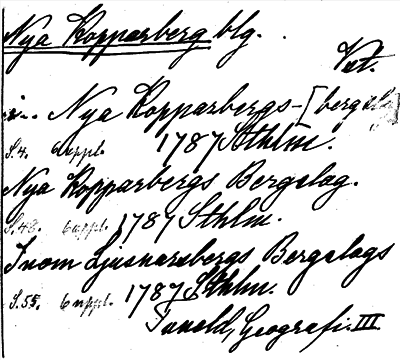 Nya Kopparberg blg.
Vst.
i.. Nya Kopparbergs-[bergsla
S.4. 6 uppl. 1787 Sthlm.
Nya Kopparbergs Bergslag.
S.48. 6 uppl. 1787 Sthlm.
Inom Ljusnarsbergs Bergslags
S.55. 6 uppl. 1787 Sthlm.
Tuneld, Geografi. III